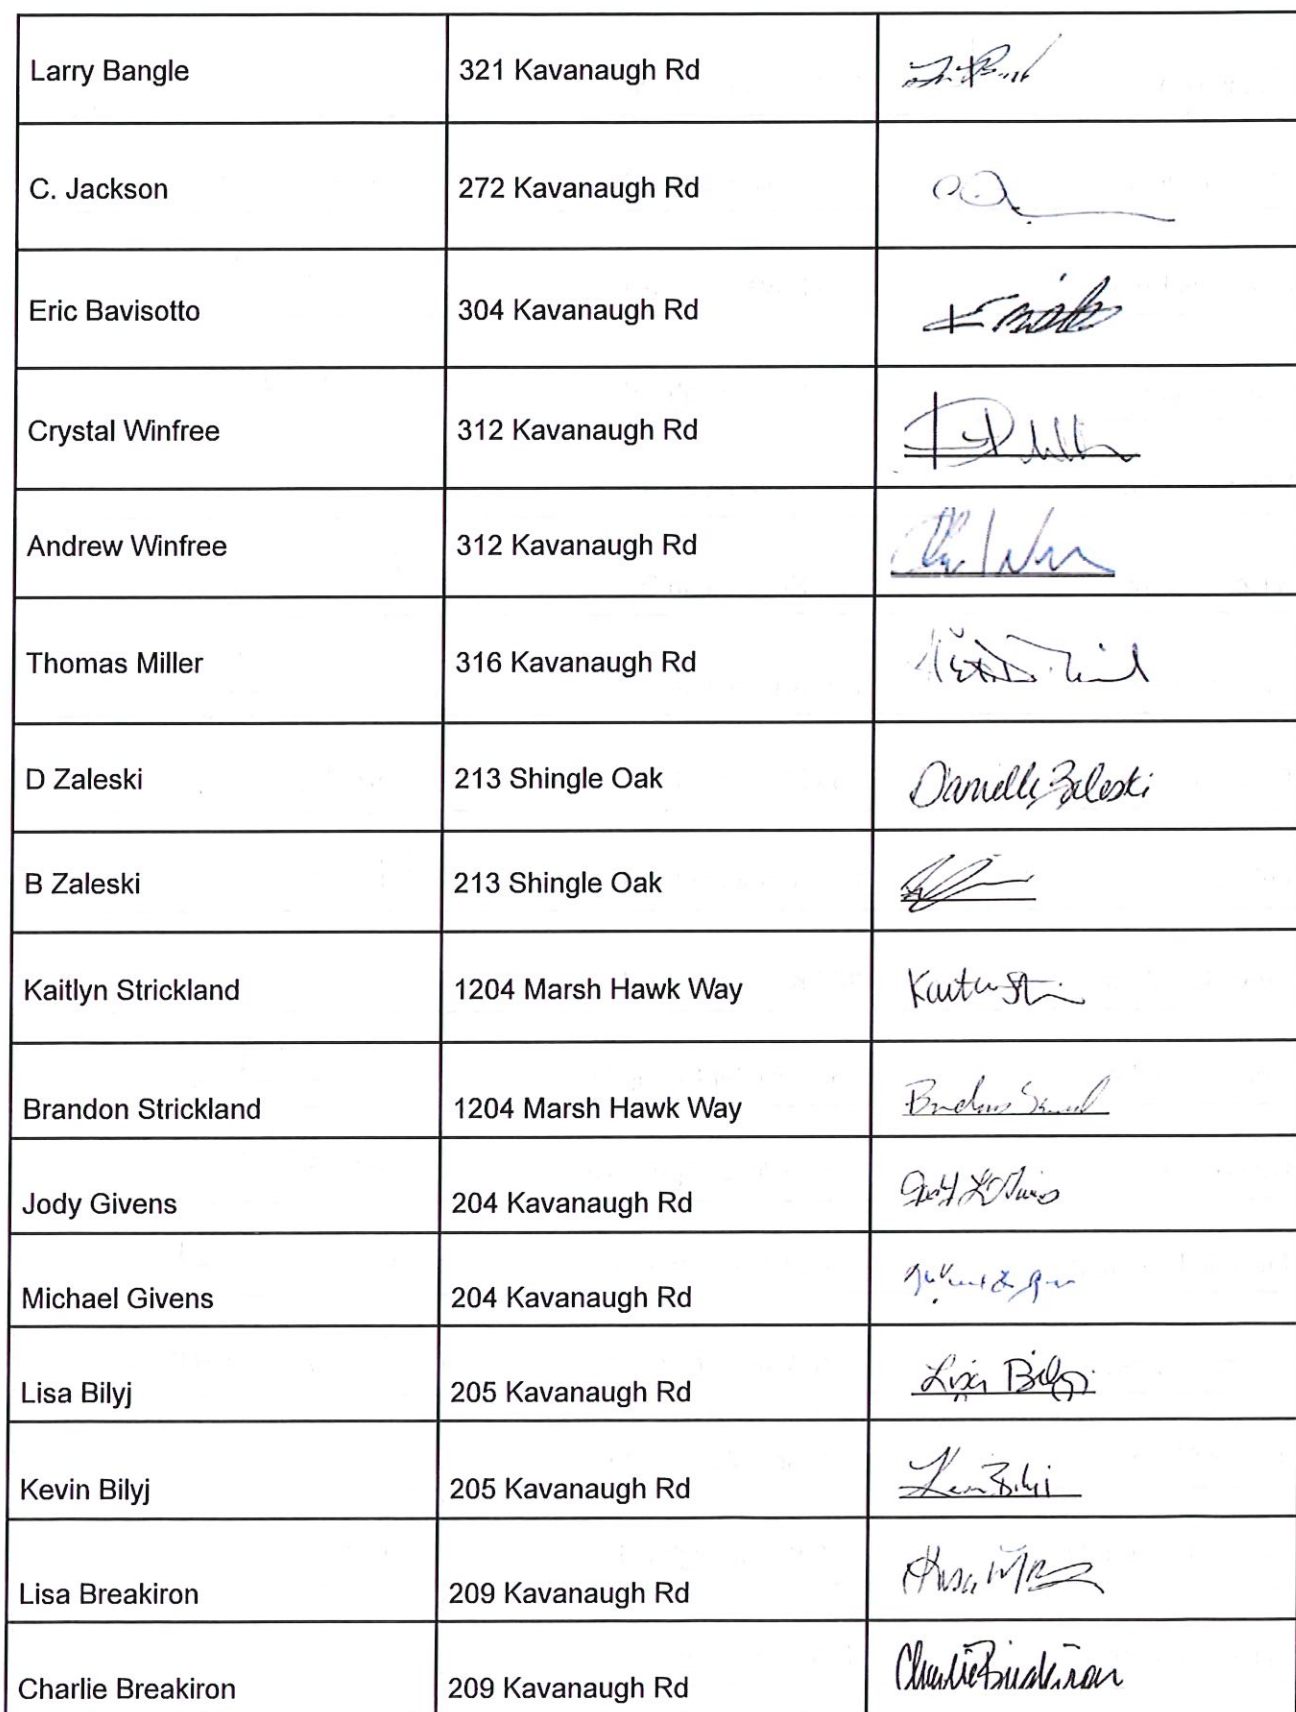 Larry Bangle 321 Kavanaugh Rd
C. Jackson 272 Kavanaugh Rd
Eric Bavisotto 304 Kavanaugh Rd
Crystal Winfree 312 Kavanaugh Rd
Andrew Winfree 312 Kavanaugh Rd
Thomas Miller 316 Kavanaugh Rd
D Zaleski 213 Shingle Oak Danielle Zaleski
B Zaleski 213 Shingle Oak
Kaitlyn Strickland 1204 Marsh Hawk Way
Brandon Strickland 1204 Marsh Hawk Way
Jody Givens 204 Kavanaugh Rd
Michael Givens 204 Kavanaugh Rd
Lisa Bilyj 205 Kavanaugh Rd Lisa Bilyj
Kevin Bilyj 205 Kavanaugh Rd Kevin Bilyj
Lisa Breakiron 209 Kavanaugh Rd
Charlie Breakiron 209 Kavanaugh Rd Charlie Breakiron